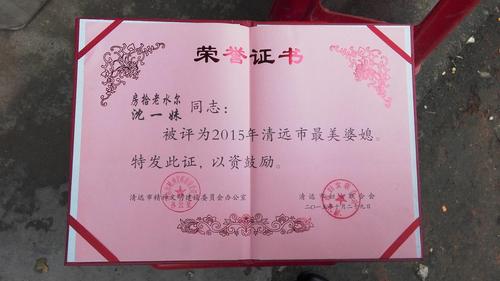 荣誉证书
房拾老水尔
沈一妹 同志:
被评为2015年清远市最美婆媳。
特发此证,以资鼓励。
清远市精神文明建设委员会办公室 清远市妇女联合会
二〇一五年十月二十九日